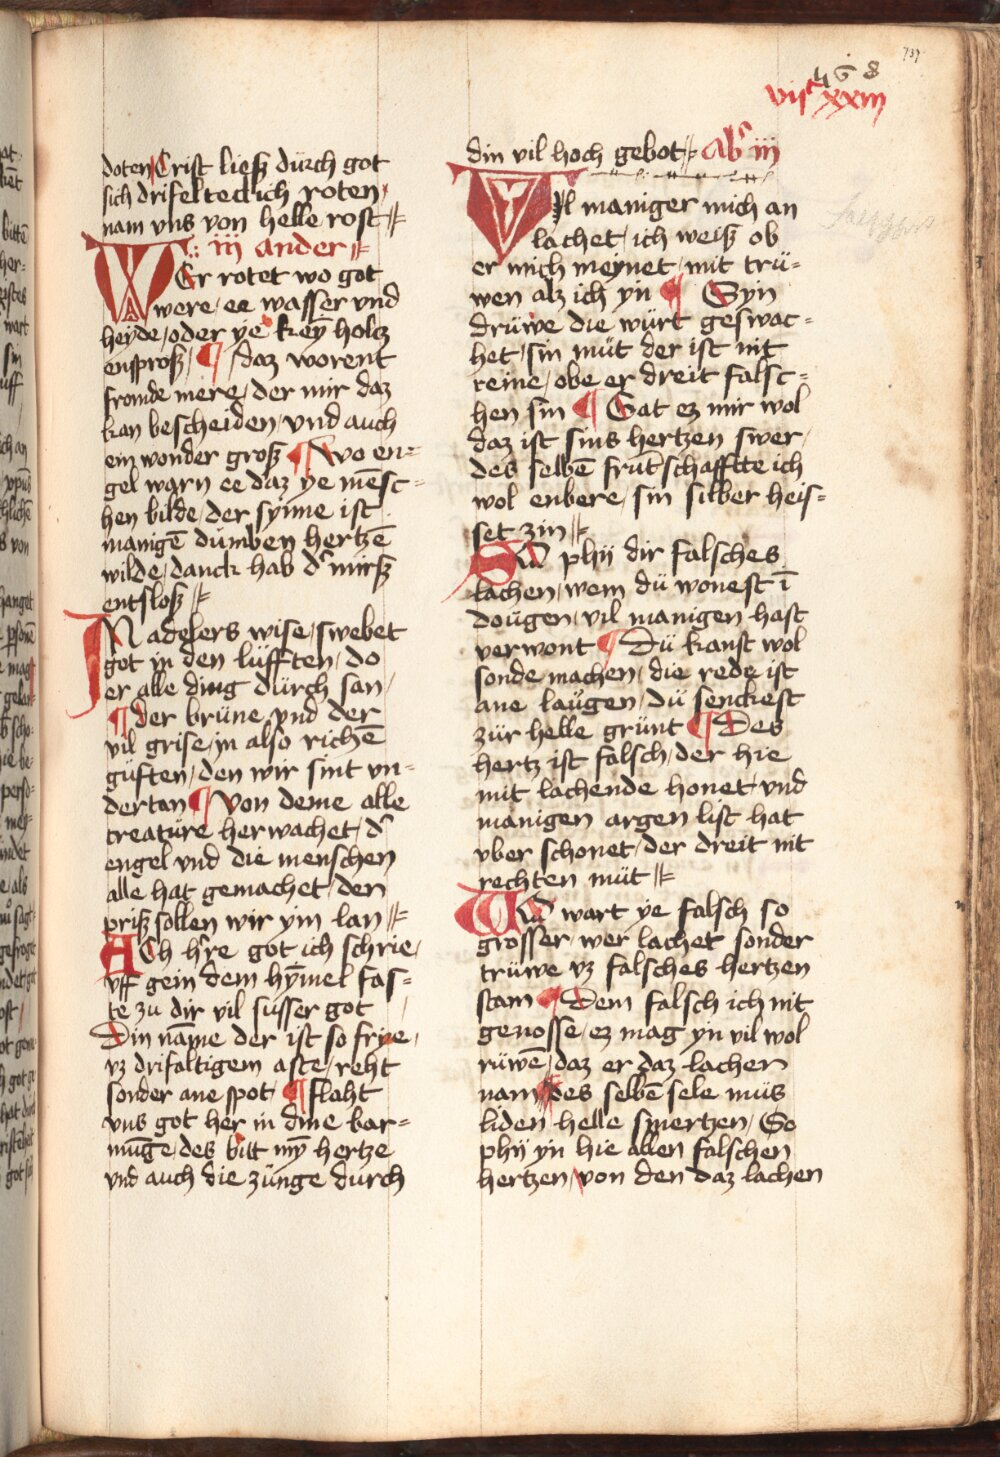 737
468
vijc xxiiij
doten Crist ließ dürch got
sich drifelteclich roten /
nam vns von helle rost //
iij ander //
WEr rotet wo got
were / ee wasser vnd
heyde / oder ye keȳ holtz
ensproß / ¶ / daz worent
fromde mere / der mir daz
kan bescheiden / vnd auch
ein wonder groß ¶ Wo en=
gel warn ee daz ye mēsc=
hen bilde / der synne ist
manigē dümben hertzē
wilde / danck hab d' mirß
entsloß //
IN adelers wise / swebet
got in den lüfften / do
er alle ding dürch san /
¶ der brüne vnd der
vil grise / in also richē
güften / den wir sint vn=
dertan ¶ von deme alle
creatüre herwachet / d'
engel vnd die menschen
alle hat gemachet / den
priß sollen wir ym lan //
ACh h're got ich schrie /
vff gein dem hȳmel fas=
te zu dir vil süsser got
Din nāme der ist so frye /
vz drifaltigem aste / reht
sonder ane spot ¶ flaht
vns got her in dine bar=
mūge / des bitt mȳ hertze
vnd auch die zünge dürch
din vil hoch gebot // Ab' iij
VIl maniger mich an
lachet / ich weiß ob
er mich meynet / mit trü=
wen alz ich yn ¶ Syn
drüwe die würt geswac=
het / sin müt der ist nit
reine / obe er dreit falsc=
hen sin ¶ Gat ez mir wol
daz ist sins hertzen swer /
des selbē frūtschafftte ich
wol enbere / sin silber heis=
set zin //
SO phij dir falsches
lachen / wem dü wonest ī
dougen / vil manigen hast
verwont ¶ Dü kanst wol
sonde machen / die rede ist
ane laügen / dü senckest
zür helle grünt ¶ Des
hertz ist falsch / der hie
mit lachende honet / vnd
manigen argen list hat
vber schonet / der dreit nit
rechten müt //
WO wart ye falsch so
grosser / wer lachet sonder
trüwe vz falsches hertzen
stam ¶ Dem falsch ich nit
genosse / ez mag yn vil wol
rüwē / daz er daz lachen
nam ¶ des selbē sele müs
liden helle smertzen / So
phij yn hie allen falschen
hertzen / von den daz lachen